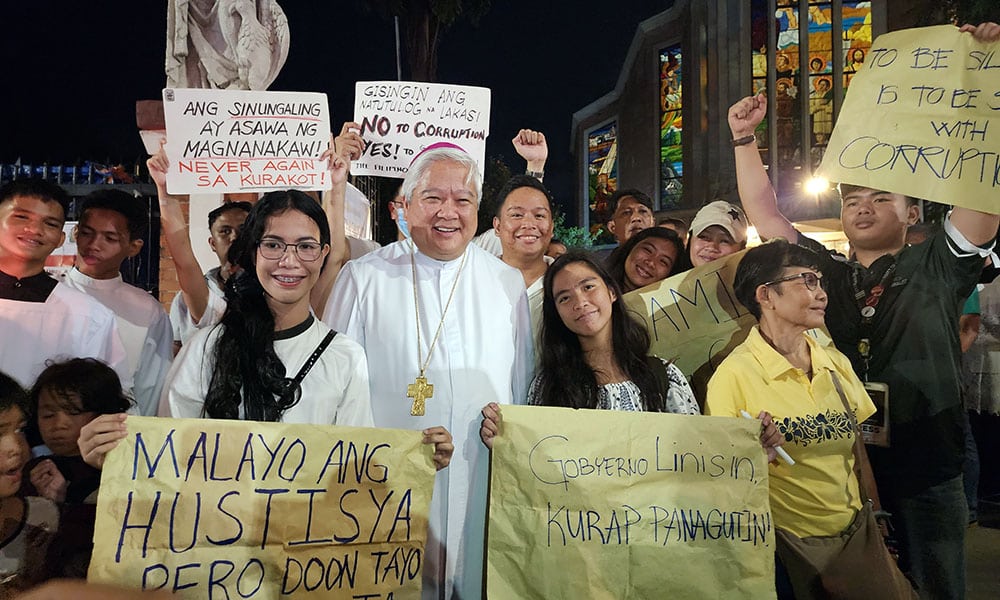 ANG SINUNGALING
AY ASAWA NG
MAGNANAKAW!
NEVER AGAIN
SA KURAKOT!
GISINGIN ANG
NATUTULOG NA LAKAS!
NO TO CORRUPTION
YES! TO
TO BE
IS TO BE
WITH
CORRUPTION
MALAYO ANG
HUSTISYA
PERO DOON TAYO
GOBYERNO LINISIN,
KURAP PANAGUTIN!